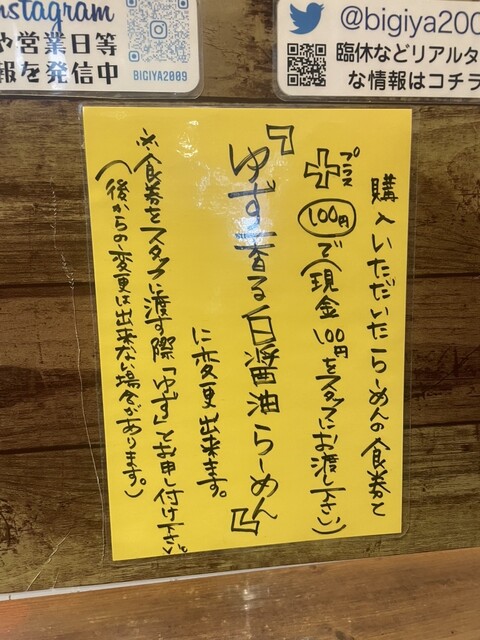 Instagram
や営業日等
報を発信中
BIGIYA2009
@bigiya200
臨休などリアルタ
な情報はコチラ
購入いただいたらーめんの食券と
プラス
＋100円で(現金100円をスタッフにお渡し下さい)
『ゆず香る白醤油らーめん』
に変更出来ます。
※食券をスタッフに渡す際「ゆず」とお申し付け下さい。
(後からの変更は出来ない場合があります。)